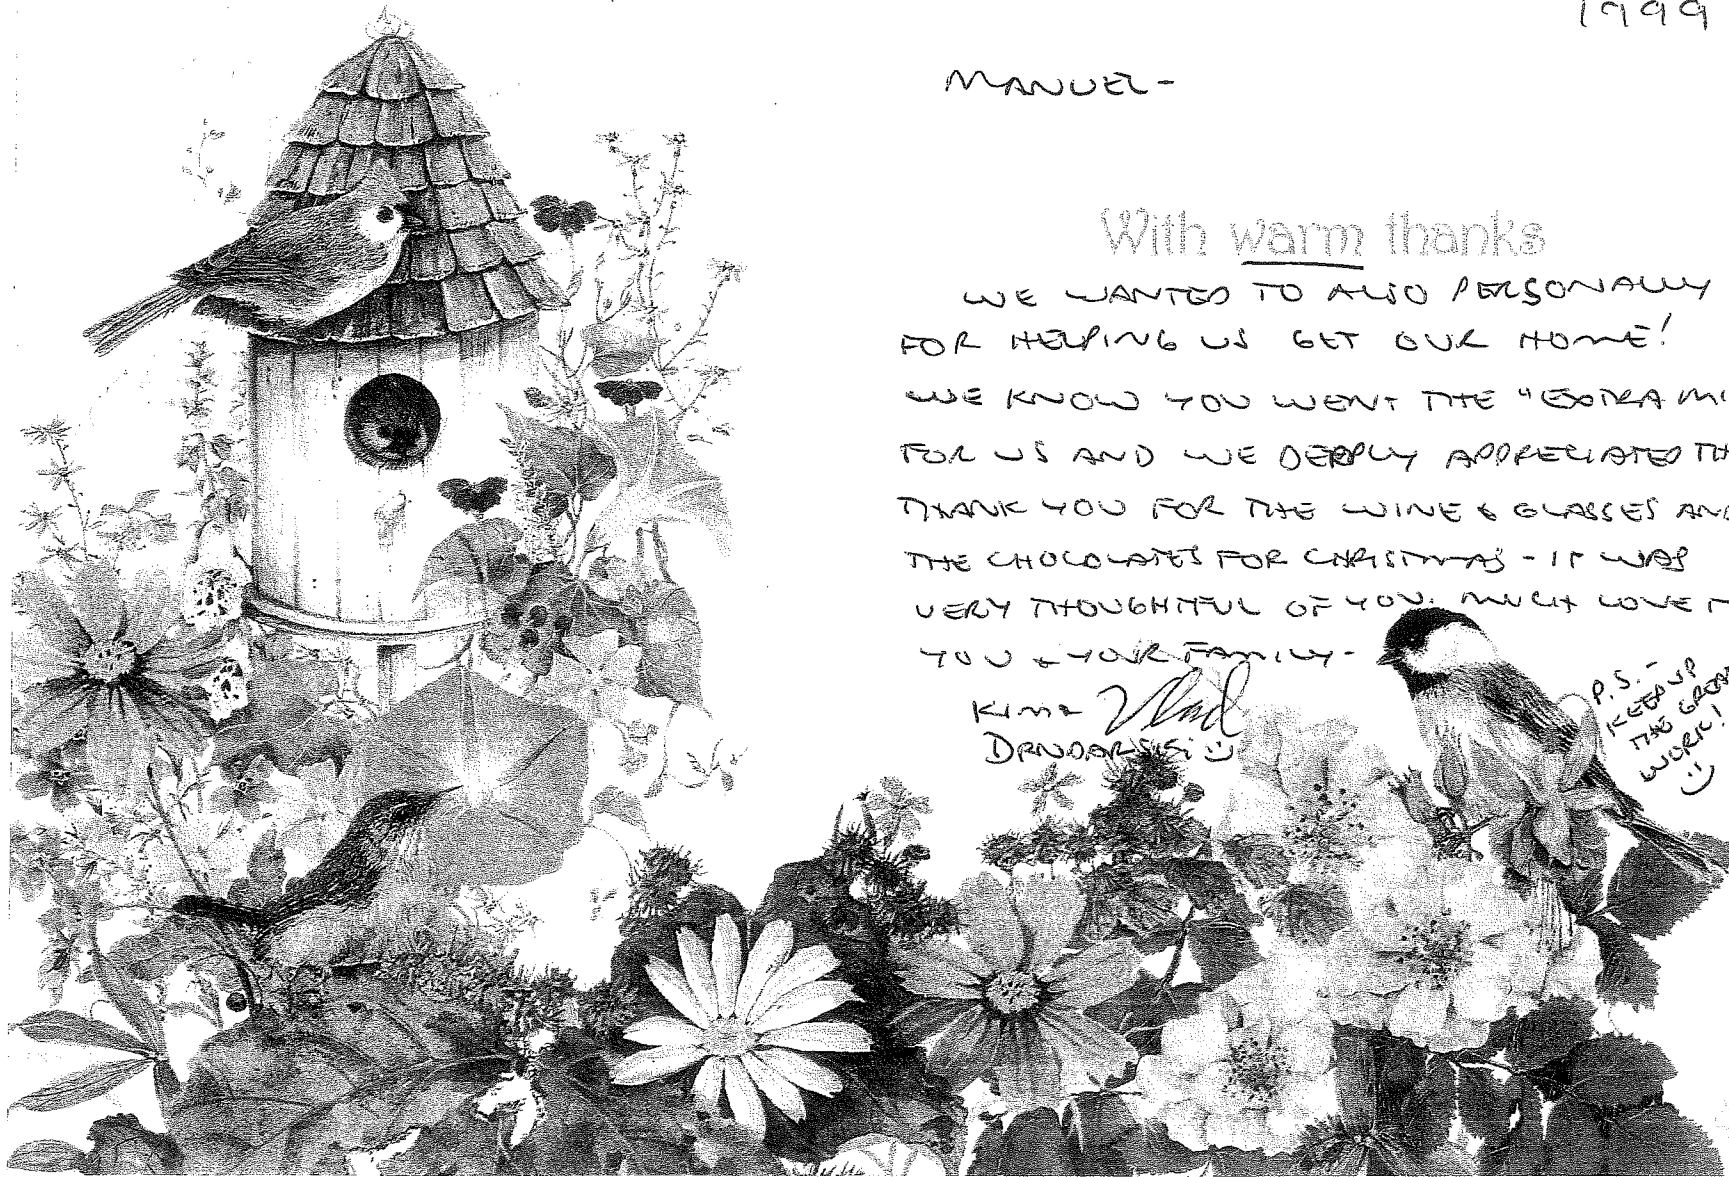 1999
MANUEL-
With warm thanks
WE WANTED TO ALSO PERSONALLY
FOR HELPING US GET OUR HOME!
WE KNOW YOU WENT THE "EXTRA MI
FOR US AND WE DEEPLY APPRECIATED TH
THANK YOU FOR THE WINE & GLASSES AND
THE CHOCOLATES FOR CHRISTMAS - IT WAS
VERY THOUGHTFUL OF YOU. MUCH LOVE T
YOU & YOUR FAMILY-
KIM & Vlad
P.S.-
KEEP UP
THE GREAT
WORK!